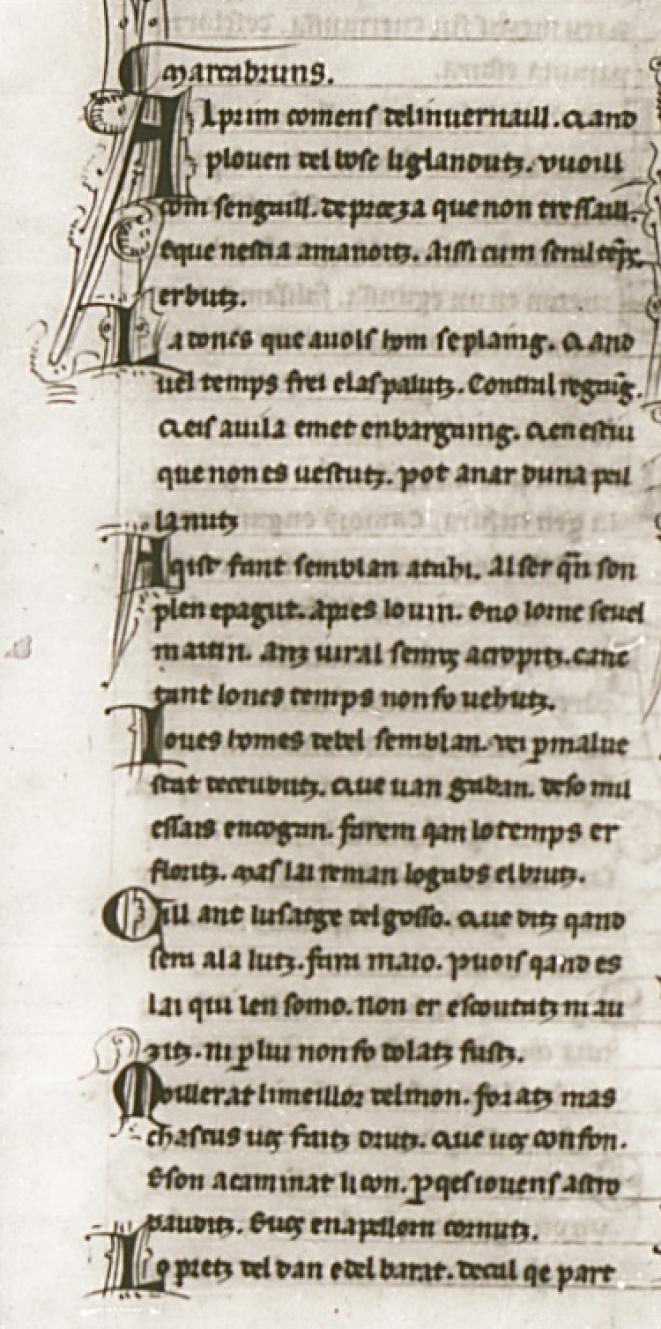 Marcabruns.
Al prim comens delinuernaill. Qand
plouen del bosc liglandutz. vuoill
com senguaill. deproeza que non tressaill.
Eque nestia amanoitz. Aissi cum seral temps
erbutz.
Ladoncs que auols hom seplaing. Qand
uel temps frei elas palutz. Contral regaing.
Qeis auila emet enbarguing. Qen estiu
que non es uestutz. pot anar duna pel
lanutz
Aqist fant semblan atahi. Al ser qan son
plen epagut. Apres louin. Eno lorne souel
matin. Anz iural sempre acropitz. cane
tant loncs temps nonfo uebutz.
Ioues homes debel semblan. vei p maluestat
stat deceubutz. Que uan gaban. deso mil
essais encogan. farem qan lo temps er
floritz. Mas lai reman logabs elbrutz.
Cill ant lusatge del gosso. Que ditz qand
sera ala lutz. fara maio. puois qand es
lai qui len somo. non er escoutatz ni au
zitz. ni p lui non fo dolatz fustz.
Moillerat limeillor delmon. foratz mas
chascus uos faitz drutz. Que uos confon.
Eson acaminat li con. p qes iouens assro
bauditz. Euos enapellom cornutz.
Lo pretz del dan edel barat. decal qe part